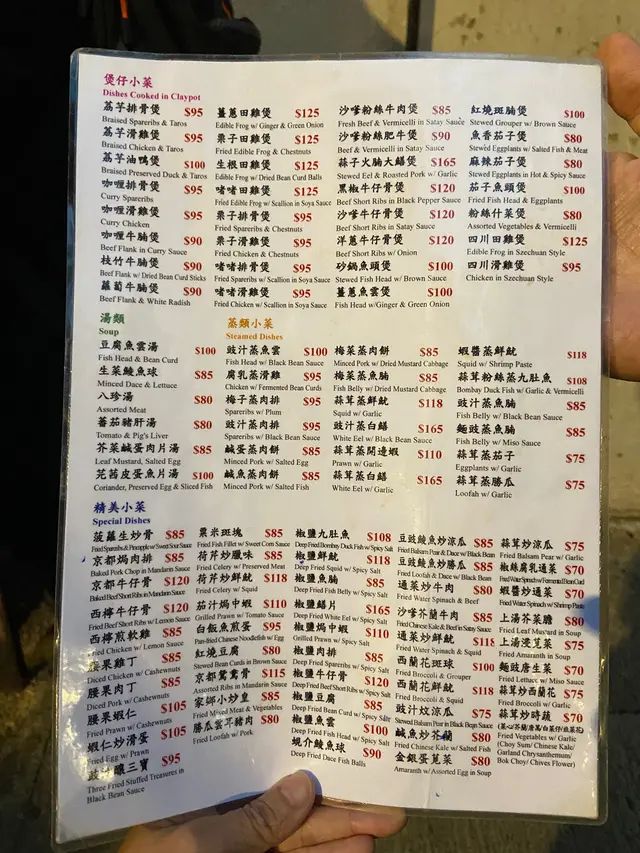 煲仔小菜
Dishes Cooked in Claypot
荔芋排骨煲 $95
Braised Spareribs & Taros
荔芋滑雞煲 $95
Braised Chicken & Taros
荔芋油鴨煲 $100
Braised Preserved Duck & Taros
咖喱排骨煲 $95
Curry Spareribs
咖喱滑雞煲 $95
Curry Chicken
咖喱牛腩煲 $90
Beef Flank in Curry Sauce
枝竹牛腩煲 $90
Beef Flank w/ Dried Bean Curd Sticks
蘿蔔牛腩煲 $90
Beef Flank & White Radish
薑蔥田雞煲 $125
Edible Frog w/ Ginger & Green Onion
栗子田雞煲 $125
Fried Edible Frog & Chestnuts
生根田雞煲 $125
Edible Frog w/ Dried Bean Curd Balls
啫啫田雞煲 $125
Fried Edible Frog w/ Scallion in Soya Sauce
栗子排骨煲 $95
Fried Spareribs & Chestnuts
栗子滑雞煲 $95
Fried Chicken & Chestnuts
啫啫排骨煲 $95
Fried Spareribs w/ Scallion in Soya Sauce
啫啫滑雞煲 $95
Fried Chicken w/ Scallion in Soya Sauce
沙嗲粉絲牛肉煲 $85
Fresh Beef & Vermicelli in Satay Sauce
沙嗲粉絲肥牛煲 $90
Beef & Vermicelli in Satay Sauce
蒜子火腩大鱔煲 $165
Stewed Eel & Roasted Pork w/ Garlic
黑椒牛仔骨煲 $120
Beef Short Ribs in Black Pepper Sauce
沙嗲牛仔骨煲 $120
Beef Short Ribs in Satay Sauce
洋蔥牛仔骨煲 $120
Beef Short Ribs w/ Onion
砂鍋魚頭煲 $100
Stewed Fish Head w/ Brown Sauce
薑蔥魚雲煲 $100
Fish Head w/Ginger & Green Onion
紅燒斑腩煲 $100
Stewed Grouper w/ Brown Sauce
魚香茄子煲 $80
Stewed Eggplants w/ Salted Fish & Meat
麻辣茄子煲 $80
Stewed Eggplants in Hot & Spicy Sauce
茄子魚頭煲 $100
Fried Fish Head & Eggplants
粉絲什菜煲 $80
Assorted Vegetables & Vermicelli
四川田雞煲 $125
Edible Frog in Szechuan Style
四川滑雞煲 $95
Chicken in Szechuan Style
湯類
Soup
豆腐魚雲湯 $100
Fish Head & Bean Curd
生菜鯪魚球 $85
Minced Dace & Lettuce
八珍湯 $80
Assorted Meat
蕃茄豬肝湯 $80
Tomato & Pig's Liver
芥菜鹹蛋肉片湯 $85
Leaf Mustard, Salted Egg
芫茜皮蛋魚片湯 $100
Coriander, Preserved Egg & Sliced Fish
蒸類小菜
Steamed Dishes
豉汁蒸魚雲 $100
Fish Head w/ Black Bean Sauce
腐乳蒸滑雞 $95
Chicken w/ Fermented Bean Curds
梅子蒸肉排 $95
Spareribs w/ Plum
豉汁蒸肉排 $95
Spareribs w/ Black Bean Sauce
鹹蛋蒸肉餅 $85
Minced Pork w/ Salted Egg
鹹魚蒸肉餅 $85
Minced Pork w/ Salted Fish
梅菜蒸肉餅 $85
Minced Pork w/ Dried Mustard Cabbage
梅菜蒸魚腩 $85
Fish Belly w/ Dried Mustard Cabbage
蒜茸蒸鮮魷 $118
Squid w/ Garlic
豉汁蒸白鱔 $165
White Eel w/ Black Bean Sauce
蒜茸蒸開邊蝦 $110
Prawn w/ Garlic
蒜茸蒸白鱔 $165
White Eel w/ Garlic
蝦醬蒸鮮魷 $118
Squid w/ Shrimp Paste
蒜茸粉絲蒸九肚魚 $108
Bombay Duck Fish w/ Garlic & Vermicelli
豉汁蒸魚腩 $85
Fish Belly w/ Black Bean Sauce
麵豉蒸魚腩 $85
Fish Belly w/ Miso Sauce
蒜茸蒸茄子 $75
Eggplants w/ Garlic
蒜茸蒸勝瓜 $75
Loofah w/ Garlic
精美小菜
Special Dishes
菠蘿生炒骨 $85
Fried Spareribs & Pineapple w/ Sweet Sour Sauce
京都焗肉排 $85
Baked Pork Chop in Mandarin Sauce
京都牛仔骨 $120
Baked Beef Short Ribs in Mandarin Sauce
西檸牛仔骨 $120
Fried Beef Short Ribs w/ Lemon Sauce
西檸煎軟雞 $85
Fried Chicken w/ Lemon Sauce
腰果雞丁 $85
Diced Chicken w/ Cashewnuts
腰果肉丁 $85
Diced Pork w/ Cashewnuts
腰果蝦仁 $105
Fried Prawn w/ Cashewnuts
蝦仁炒滑蛋 $105
Fried Egg w/ Prawn
釀三寶 $95
Three Fried Stuffed Treasures in
Black Bean Sauce
粟米斑塊 $85
Fried Fish Fillet w/ Sweet Corn Sauce
荷芹炒臘味 $85
Fried Celery w/ Preserved Meat
荷芹炒鮮魷 $118
Fried Celery w/ Squid
茄汁焗中蝦 $110
Grilled Prawn w/ Tomato Sauce
白飯魚煎蛋 $95
Pan-fried Chinese Noodlefish w/ Egg
紅燒豆腐 $80
Stewed Bean Curds in Brown Sauce
京都鴛鴦骨 $115
Assorted Ribs in Mandarin Sauce
家鄉小炒皇 $85
Fried Mixed Meat & Vegetables
勝瓜雲耳豬肉 $80
Fried Loofah w/ Pork
椒鹽九肚魚 $108
Deep Fried Bombay Duck Fish w/ Spicy Salt
椒鹽鮮魷 $118
Deep Fried Squid w/ Spicy Salt
椒鹽魚腩 $85
Deep Fried Fish Belly w/ Spicy Salt
椒鹽鱔片 $165
Deep Fried White Eel w/ Spicy Salt
椒鹽中蝦 $110
Grilled Prawn w/ Spicy Salt
椒鹽肉排 $85
Deep Fried Spareribs w/ Spicy Salt
椒鹽牛仔骨 $120
Deep Fried Beef Short Ribs w/ Spicy Salt
椒鹽豆腐 $85
Deep Fried Bean Curd w/ Spicy Salt
椒鹽魚雲 $100
Deep Fried Fish Head w/ Spicy Salt
蜆介鯪魚球 $90
Deep Fried Dace Fish Balls
豆豉鯪魚炒涼瓜 $85
Fried Balsam Pear & Dace w/ Black Bean
豆豉鯪魚炒勝瓜 $85
Fried Loofah & Dace w/ Black Bean
通菜炒牛肉 $80
Fried Water Spinach & Beef
沙嗲芥蘭牛肉 $85
Fried Chinese Kale & Beef in Satay Sauce
通菜炒鮮魷 $118
Fried Water Spinach & Squid
西蘭花斑球 $100
Fried Broccoli & Grouper
西蘭花鮮魷 $118
Fried Broccoli & Squid
豉汁炆涼瓜 $75
Stewed Balsam Pear in Black Bean Sauce
鹹魚炒芥蘭 $80
Fried Chinese Kale w/ Salted Fish
金銀蛋莧菜 $80
Amaranth w/ Assorted Egg in Soup
蒜茸炒涼瓜 $75
Fried Balsam Pear w/ Garlic
椒絲腐乳通菜 $70
Fried Water Spinach w/ Fermented Bean Curd
蝦醬炒通菜 $70
Fried Water Spinach w/ Shrimp Paste
上湯芥菜膽 $80
Fried Leaf Mustard in Soup
上湯浸莧菜 $75
Fried Amaranth in Soup
麵豉唐生菜 $70
Fried Lettuce w/ Miso Sauce
蒜茸炒西蘭花 $75
Fried Broccoli w/ Garlic
蒜茸炒時蔬 $70
(菜心/芥蘭/唐蒿/白菜仔/韭菜花)
Fried Vegetables w/ Garlic
(Choy Sum/ Chinese Kale/
Garland Chrysanthemum/
Bok Choy/ Chives Flower)